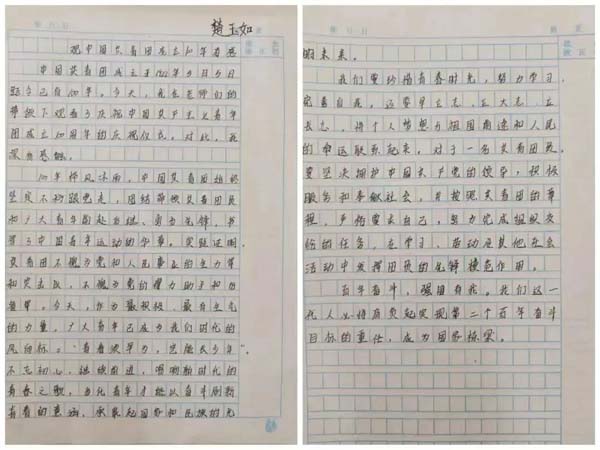 楚玉如
观中国共青团成立100年有感
中国共青团成立于1922年5月5日
距今已有100年。今天,我在老师们的
带领下观看了庆祝中国共产主义青年
团成立100周年的庆祝仪式。对此,我
深有感触。
100年栉风沐雨,中国共青团始终
坚定不移跟党走,团结带领共青团员
和广大青年前赴后继、勇当先锋,书
写了中国青年运动的华章。实践证明
共青团不愧为党和人民事业的生力军
和突击队,不愧为党的得力助手和后
备军。今天,作为最积极、最有生气
的力量,广大青年已成为我们时代的
风向标。"青春须早为,岂能长少年"。
不忘初心,继续前进,唱响新时代的
青春之歌。当代青年才能以奋斗刷新
青春的意涵,承载起国家和民族的光
明未来。
我们要珍惜青春时光,努力学习,
完善自我,还要早立志、立大志、立
长志,将个人梦想与祖国前途和人民
的命运联系起来。对于一名共青团员,
要坚决拥护中国共产党的领导,积极
服务和奉献社会,并按照共青团的章
程,严格要求自己,努力完成组织交
给的任务,在学习、劳动及其他社会
活动中发挥团员的先锋模范作用。
百年奋斗,强国有我。我们这一
代人必将肩负起实现第二个百年奋斗
目标的重任,成为国家栋梁。